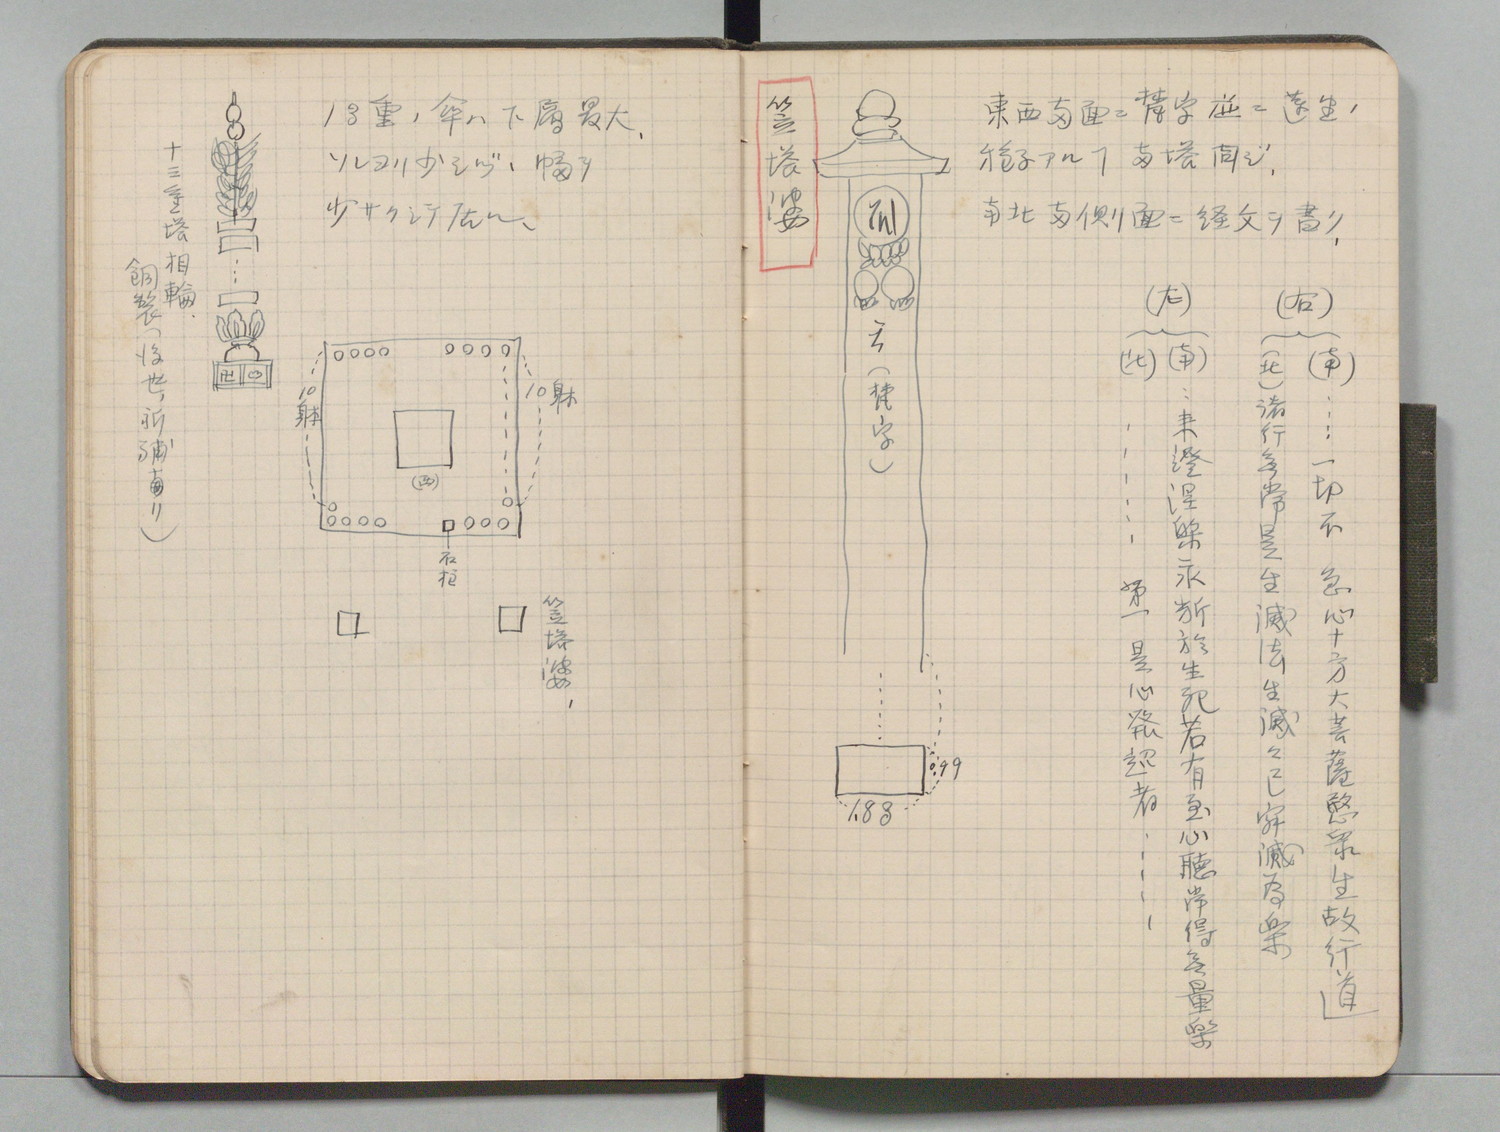 13重ノ傘ハ下層最大、
ソレヨリ少シヅヽ幅ヲ
少サクシテ居ル、
十三重塔相輪、
銅製(後世ノ所補ナリ)
10躰
10躰
(西)
石柱
笠塔婆、
笠塔婆
(梵字)
1.88
0.99
東西両面ニ梵字並ニ蓮生ノ
種子アルコト両塔同ジ、
南北両側面ニ経文ヲ書ク、
(右)
(南)……一切不 急心十方大菩薩愍衆生故行道
(北)諸行無常是生滅法生滅々已寂滅為楽
(左)
(南)…来證涅槃永断於生死若有至心聴常得無量楽
(北)……第一是心発起者……